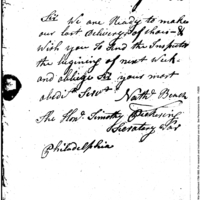 Sir We are Ready to make
our last delivery of shoes &
Wish you to Send the Inspector
the begining of next Week
and oblige Sir your most
obedt Servt Nathl
The Honl Timothy Pickering
Secretary War
Philadelphia